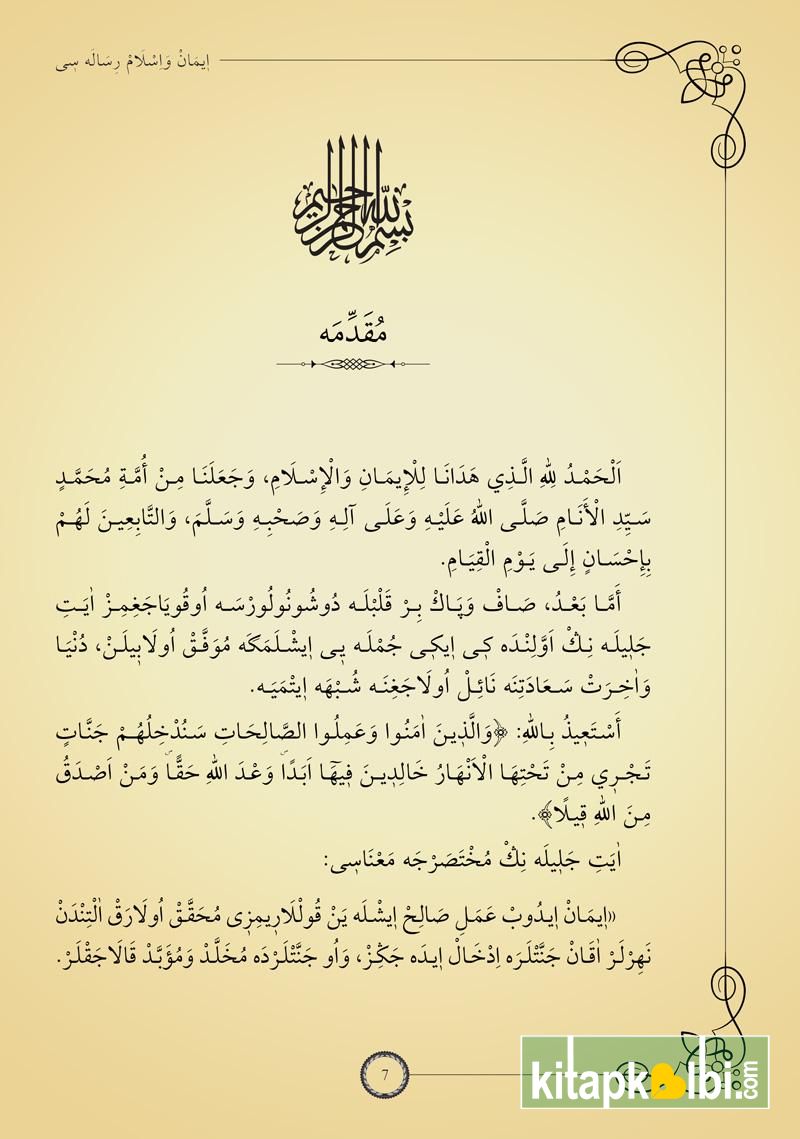 اٖيمَانْ وَاِسْلَامْ رِسَالَه سِى
بِسْمِ اللهِ الرَّحْمٰنِ الرَّحِيمِ
مُقَدِّمَه
اَلْحَمْدُ لِلّٰهِ الَّذِي هَدَانَا لِلْإِيمَانِ وَالْإِسْلَامِ، وَجَعَلَنَا مِنْ أُمَّةِ مُحَمَّدٍ
سَيِّدِ الْأَنَامِ صَلَّى اللهُ عَلَيْهِ وَعَلَى آلِهِ وَصَحْبِهِ وَسَلَّمَ، وَالتَّابِعِينَ لَهُمْ
بِإِحْسَانٍ إِلَى يَوْمِ الْقِيَامِ.
أَمَّا بَعْدُ، صَافْ وَپَاكْ بِرْ قَلْبْلَه دُوشُونُولُورْسَه اُوقُويَاجَغِمِزْ اٰيَتِ
جَلٖيلَه نِڭْ اَوَّلِنْدَه كٖى اٖيكٖى جُمْلَه يٖى اٖيشْلَمَكَه مُوَفَّقْ اُولَابٖيلَنْ، دُنْيَا
وَاٰخِرَتْ سَعَادَتِنَه نَائِلْ اُولَاجَغِنَه شُبْهَه اٖيتْمَيَه.
أَسْتَعِيذُ بِاللهِ: ﴿وَالَّذٖينَ اٰمَنُوا وَعَمِلُوا الصَّالِحَاتِ سَنُدْخِلُهُمْ جَنَّاتٍ
تَجْرٖي مِنْ تَحْتِهَا الْاَنْهَارُ خَالِدٖينَ فٖيهَٓا اَبَدًاۜ وَعْدَ اللهِ حَقًّاۜ وَمَنْ اَصْدَقُ
مِنَ اللهِ قٖيلًا﴾.
اٰيَتِ جَلٖيلَه نِڭْ مُخْتَصَرْجَه مَعْنَاسٖى:
«اٖيمَانْ اٖيدُوبْ عَمَلِ صَالِحْ اٖيشْلَه يَنْ قُولْلَارٖيمِزٖى مُحَقَّقْ اُولَارَقْ اٰلْتِنْدَنْ
نَهِرْلَرْ اٰقَانْ جَنَّتْلَرَه اِدْخَالْ اٖيدَه جَكِزْ، وَاُو جَنَّتْلَرْدَه مُخَلَّدْ وَمُؤَبَّدْ قَالَاجَقْلَرْ.
7
kitapkalbi.com